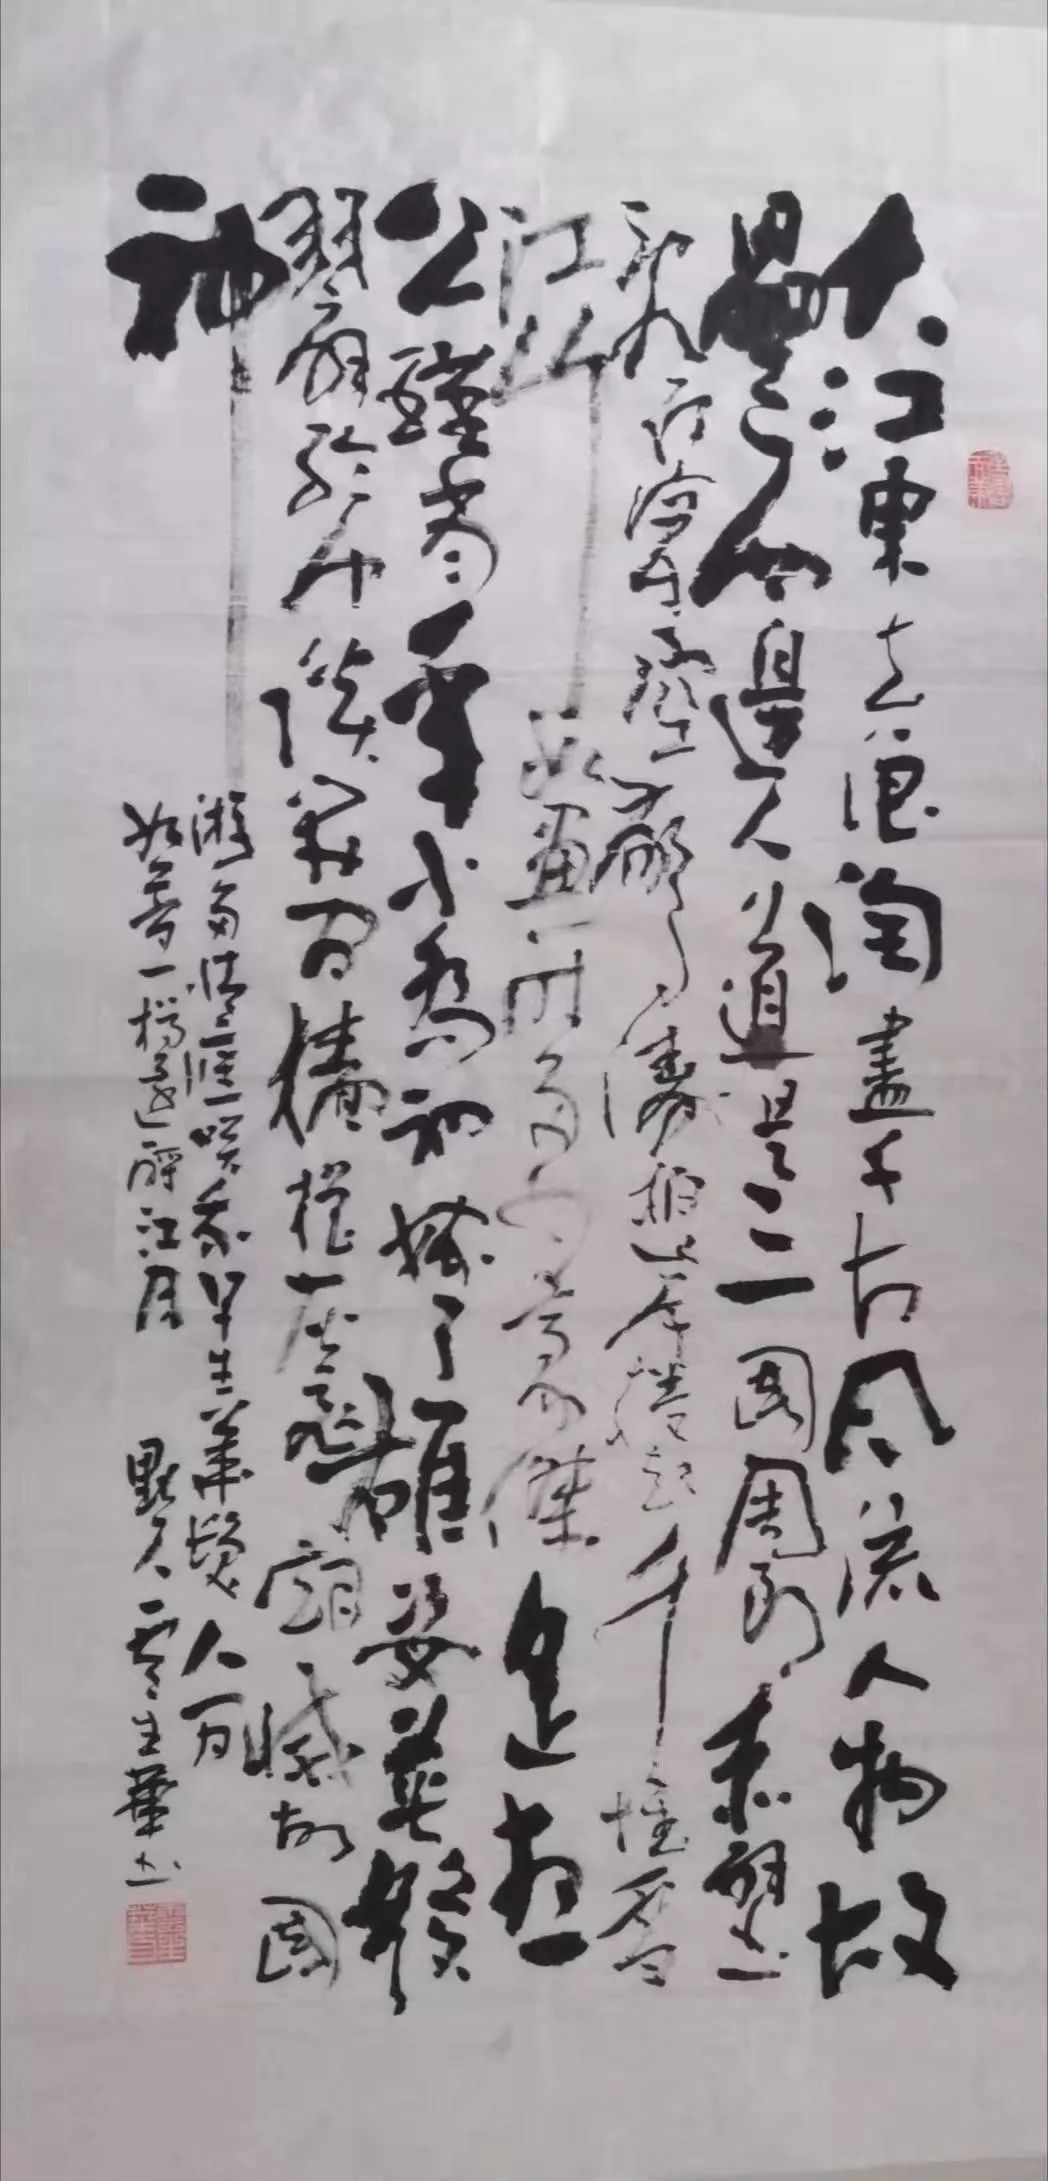 大江東去浪淘盡千古風流人物故
壘西邊人道是三國周郎赤壁
亂石穿空驚濤拍岸捲起千堆雪
江山如畫一時多少豪傑遙想
公瑾當年小喬初嫁了雄姿英發
羽扇綸巾談笑間檣櫓灰飛煙滅故國
神
遊多情應笑我早生華髮人間
如夢一樽還酹江月